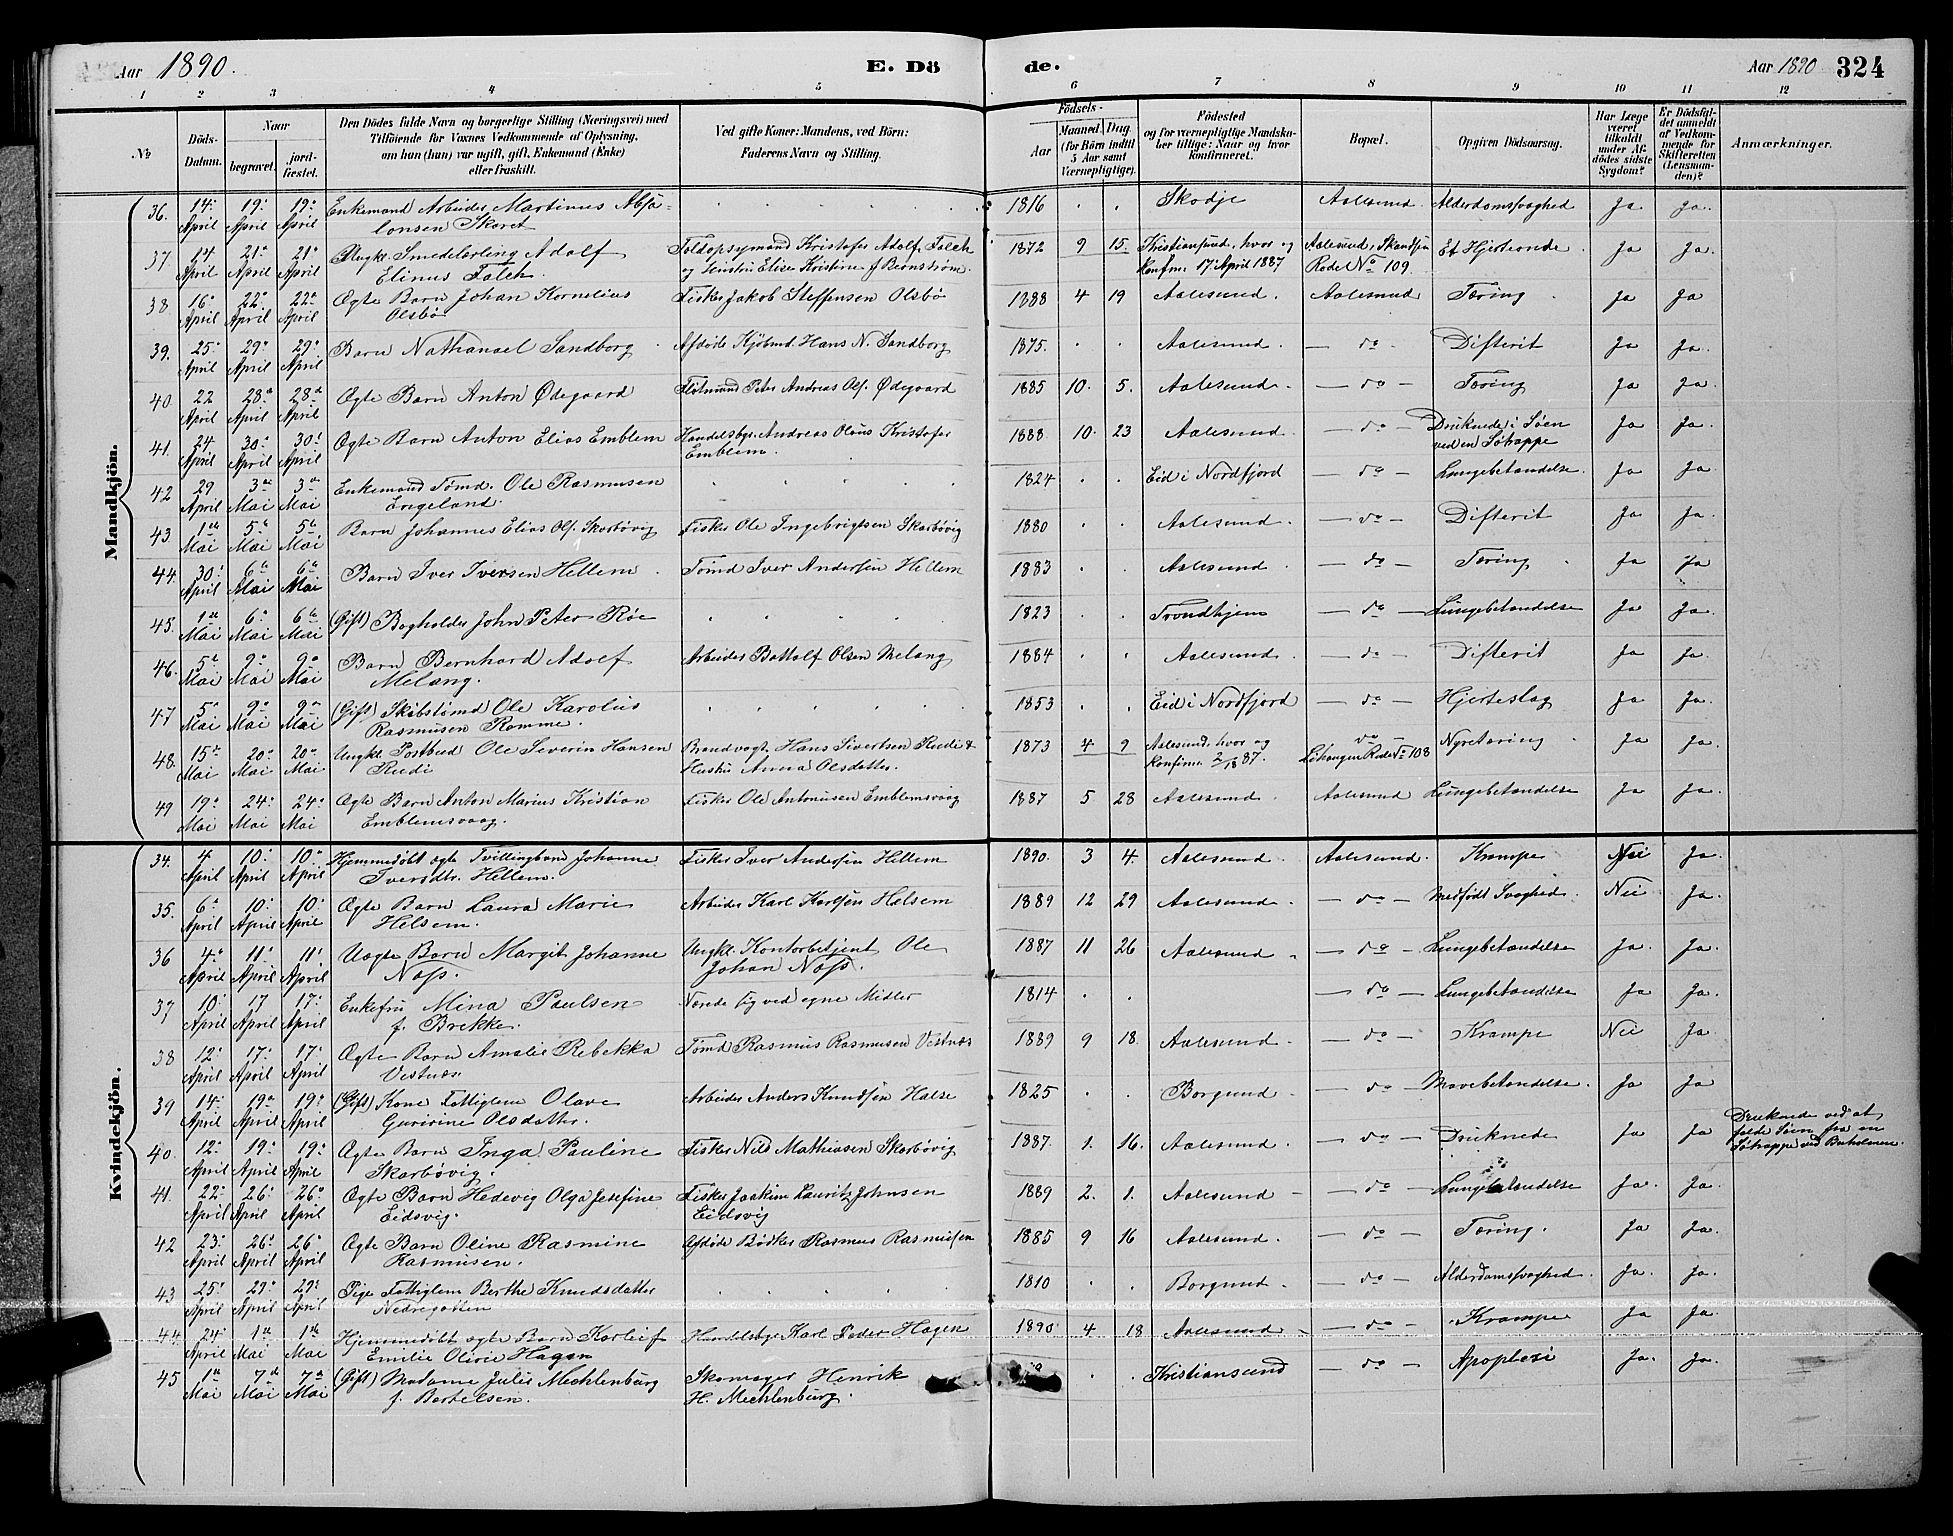 Aar 1890. E. Dö de. Aar 1890 324
1 2 3 4 5 6 7 8 9 10 11 12
No Döds-Datum. Naar begravet. jordfæstet. Den Dödes fulde Navn og borgerlige Stilling (Næringsvei) med Tilföiende for Voxnes Vedkommende af Oplysning, om han (hun) var ugift, gift, Enkemand (Enke) eller fraskilt. Ved gifte Koner: Mandens, ved Börn: Faderens Navn og Stilling. Födsels- Aar Maaned. Dag. (for Börn indtil 5 Aar samt Værnepligtige). Födested og for værnepligtige Mandskaber tillige: Naar og hvor konfirmeret. Bopæl. Opgiven Dödsaarsag. Har Læge været tilkaldt under Afdödes sidste Sygdom? Er Dödsfaldet anmeldt af Vedkommende for Skifteretten (Lensmanden)? Anmærkninger.
Mandkjön.
36. 14. April 19. April 19. April Enkemand Arbeider Martinus Absalonsen Skoret 1816 Skodje Aalesund. Alderdomssvaghed Ja Ja.
37 14 April 21. April 21. April Ungkl. Smedlærling Adolf Elinus Falch. Toldopsynmand Kristofer Adolf Falch og Hustru Elise Kristine f. Bernstrøm. 1872 9 15 Kristiansund, hvor og konfm. 17 April 1887 Aalesund, Rode No 109. Et Hjerteonde. Ja Ja.
38. 16. April 22. April 22. April Ægte Barn Johan Kornelius Olsbø Fisker Jakob Steffensen Olsbø 1888 4 19 Aalesund. Aalesund Tæring Ja Ja
39. 25. April 29. April 29. April Barn Nathanael Sandborg Afdøde Kjøbmd. Hans N. Sandborg 1875. Aalesund. — do — Difterit Ja Ja.
40 22 April 28. April 28. April Ægte Barn Anton Ødegaard Peter Andreas Ols. Ødegaard 1885 10. 5. Aalesund. — do — Tæring Ja Ja.
41. 24. April 30. April 30. April Ægte Barn Anton Elias Emblem Handelsbgr. Andreas Olaus Kristofer Emblem. 1888. 10. 23 Aalesund. — do — Druknede i Søen ved en Søtrappe Ja Ja.
42 29 April 3. Mai 3. Mai Enkemand Tømd. Ole Rasmusen Engeland. 1824 Eid i Nordfjord — do — Lungebetændelse. Ja Ja
43. 1. Mai 5. Mai 5. Mai Barn Johannes Elias Ols. Skarbøvig Fisker Ole Ingebrigtsen Skarbøvig 1880 Aalesund. — do — Difterit Ja Ja.
44. 30. April 6. Mai 6. Mai Barn Iver Iversen Hellem Tømd Iver Andersen Hellem 1883 Aalesund. — do — Tæring Ja Ja
45. 1. Mai 6. Mai 6. Mai (Gift) Bogholder John Peter Røe 1823 Trondhjem — do — Lungebetændelse Ja Ja.
46. 5. Mai 9. Mai 9. Mai Barn Bernhard Adolf Melang. Arbeider Bottolf Olsen Melang 1884 Aalesund. — do — Difterit Ja Ja.
47 5. Mai 9. Mai 9. Mai (Gift) Skibstømd Ole Karolius Rasmusen Romme. 1853 Eid i Nordfjord — do — Hjerteslag Ja Ja.
48. 15. Mai 20. Mai 20. Mai Ungkl. Postbud Ole Severin Hansen Rudi Brandvagt. Hans Sivertsen Rudi & Hustru Anna Olsdatter. 1873 4 9 Aalesund, hvor og konfirm. 2/10 87. do Rode No 108 Nyretæring Ja Ja.
49 19. Mai 24. Mai 24. Mai Ægte Barn Anton Marius Kristian Emblemsvaag. Fisker Ole Antonusen Emblemsvaag 1887 5 28 Aalesund. Aalesund Lungebetændelse Ja Ja.
Kvindekjön.
34. 4 April 10. April 10. April Hjemmedøbt ægte Tvillingbarn Johanne Iversdtr. Hellem. Fisker Iver Andersen Hellem 1890. 3 4. Aalesund. Aalesund. Krampe Nei Ja.
35. 6. April 10. April 10. April Ægte Barn Laura Marie Helsem. Arbeider Karl Karlsen Helsem 1889 12 29 Aalesund. — do — Medfødt Svaghed. Nei Ja.
36 4. April 11. April 11. April Uægte Barn Margit Johanne Næss. Ungkl. Kontorbetjent Ole Johan Næss. 1887 11 26 Aalesund — do — Lungebetændelse Ja. Ja.
37 10. April 17 April 17. April Enkefru Mina Paulsen f. Brekke. Nærede sig ved egne Midler 1814 — do — Lungebetændelse Ja Ja.
38 12. April 17. April 17. April Ægte Barn Amalie Rebekka Vestnæs Tømd Rasmus Rasmusen Vestnæs 1889 9 18. Aalesund. — do — Krampe Nei Ja
39 14. April 19. April 19. April (Gift) Kone Fattiglem Olave Gurine Olsdatter. Arbeider Anders Knudsen Halse 1825 Borgund. — do — Mavebetændelse. Ja Ja
40. 12. April 19. April 19. April Ægte Barn Inga Pauline Skarbøvig. Fisker Nils Mathiasen Skarbøvig 1887. 1. 16. Aalesund. — do — Druknede Ja Ja Druknede ved at falde i Søen fra en Søtrappe ved Buholmen.
41. 22. April 26. April 26. April Ægte Barn Hedevig Olga Josefine Eidsvig. Fisker Joakim Lauritz Johnsen Eidsvig 1889 2. 1. Aalesund — do — Lungebetændelse Ja. Ja.
42 23. April 26. April 26. April Ægte Barn Oline Rasmine Rasmusen. Afdøde Bødker Rasmus Rasmusen 1885 9 16 Aalesund. — do — Tæring. Ja Ja.
43 25. April 29. April 29. April Pige Fattiglem Berthe Knudsdatter Nedregotten 1810 Borgund. — do — Alderdomssvaghed. Ja. Ja.
44. 24. April 1. Mai 1. Mai Hjemmedøbt ægte Barn Emilie Olivie Hagen Handelsbgr. Karl Peder Hagen 1890. 4 18 Aalesund — do — Krampe Ja Ja.
45 1. Mai 7. Mai 7. Mai (Gift) Madame Julie Mechlenburg f. Bertelsen. Skomager Henrik H. Mechlenburg. Kristiansund — do — Apoplexi Ja. Ja.